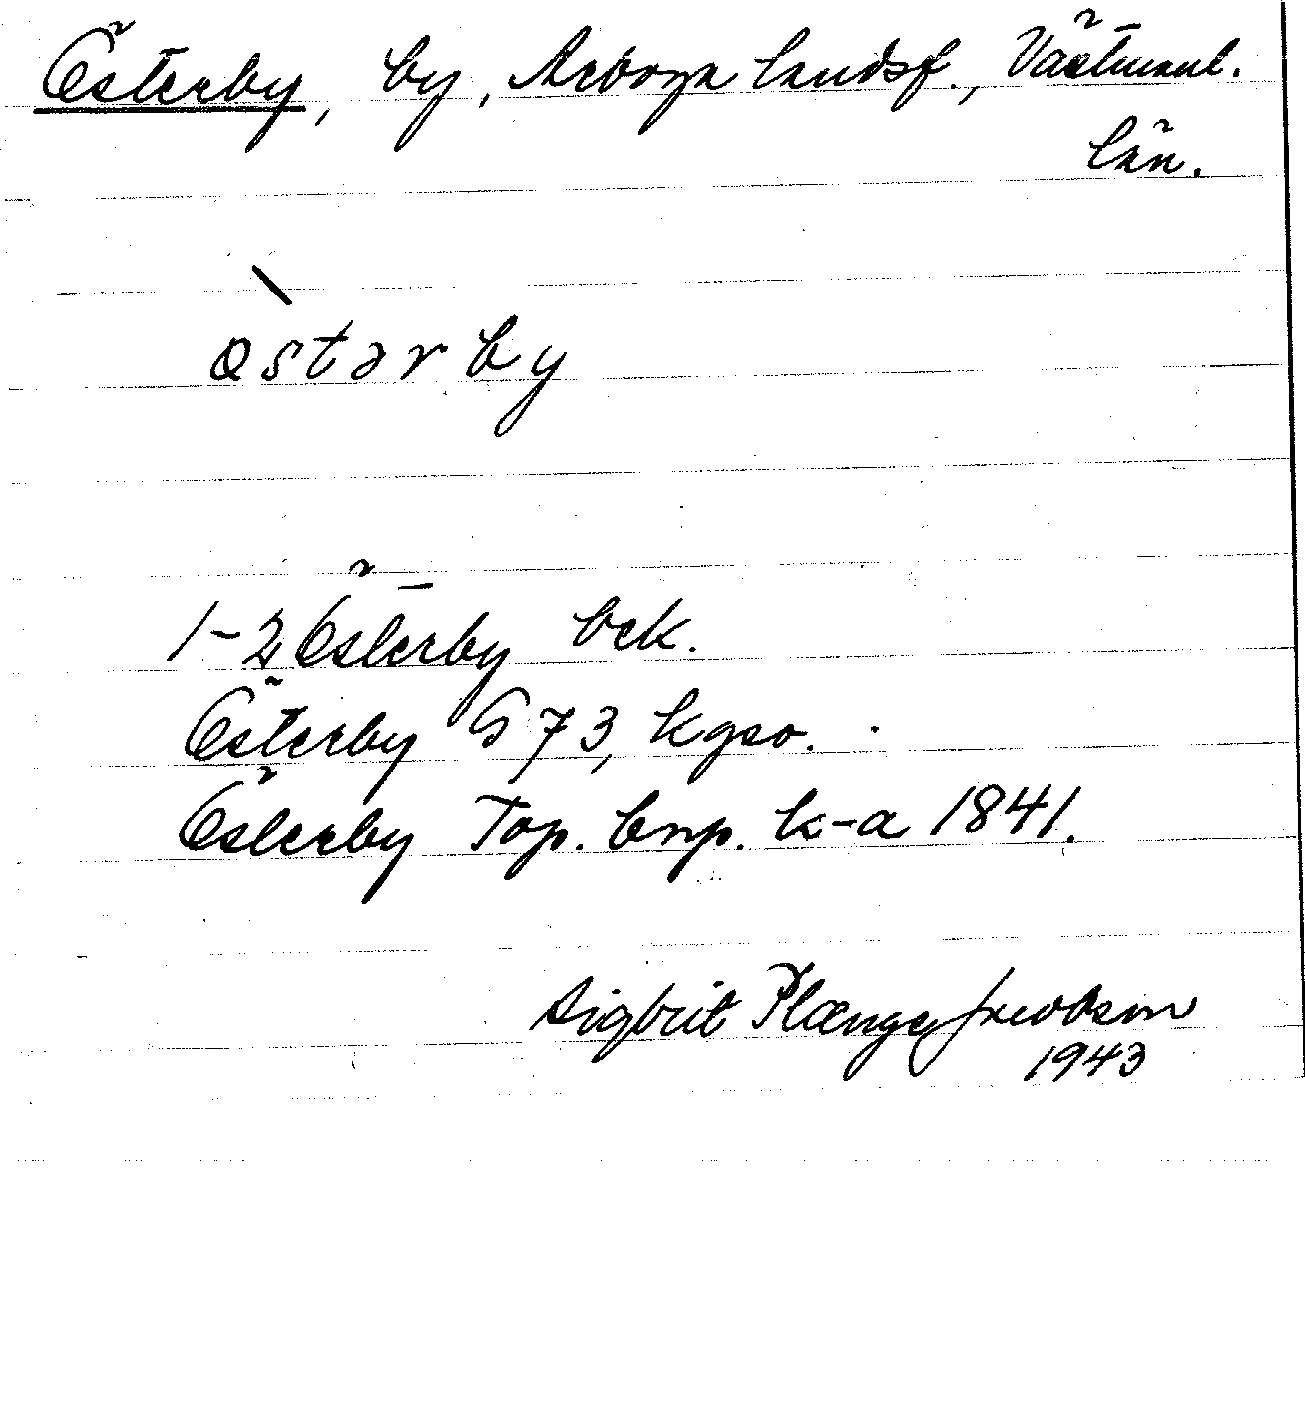 Österby, by, Arboga landsf., Västmanl.
län.
østərby
1-2 Österby bek.
Österby G 73, kgso.
Österby Top. bnp. k-a 1841.
Sigbrit Plænge Jacobson
1943